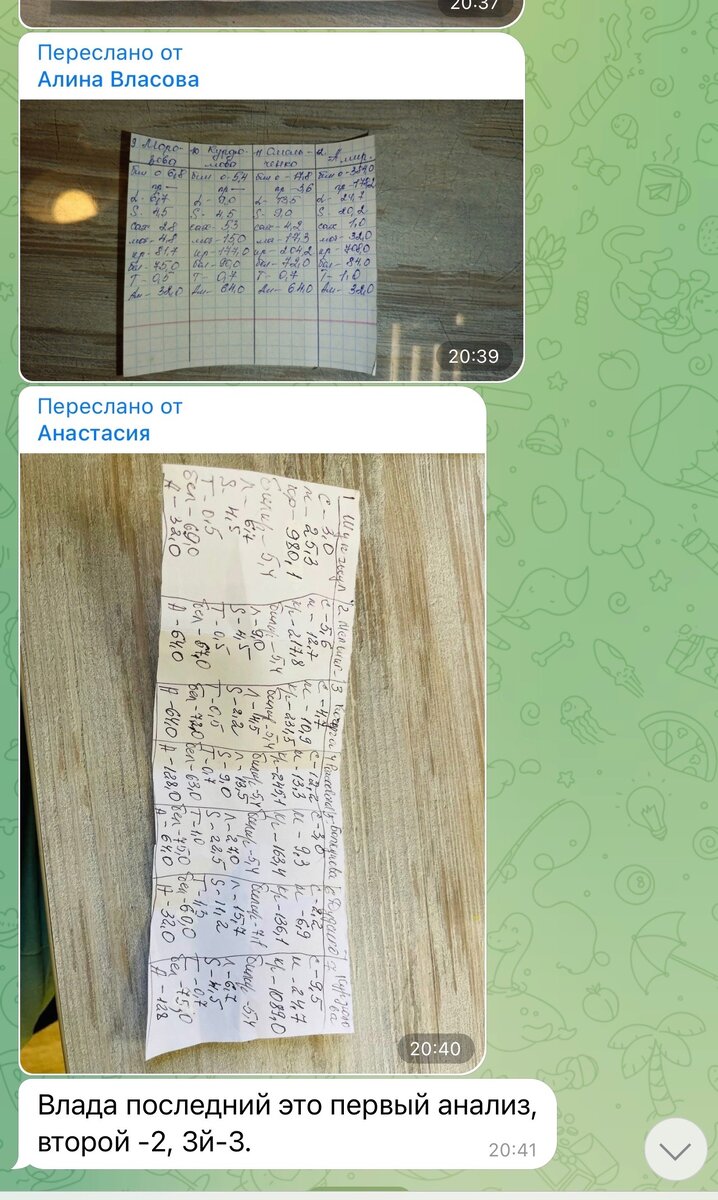 20:37
Переслано от
Алина Власова
9 Моро-
зова
бил о 6,8
пр —
L - 6,7
S - 4,5
сах - 2,8
моч - 4,8
кр - 81,7
бел - 75,0
Т - 0,5
Ам - 32,0
10 Курба-
бил о - 5,4
пр —
L - 9,0
S - 4,5
сах - 5,3
моч - 15,0
кр - 177,0
Т - 0,7
Ам - 64,0
11 Смоль-
ченко
пр - 3,6
L - 13,5
S - 9,0
сах - 4,2
моч - 17,3
кр - 204,2
бел - 72,0
Т - 0,7
Ам - 64,0
12 Амир.
L - 24,7
S - 20,2
сах - 1,0
моч - 32,0
кр - 708,0
бел - 84,0
Т - 1,0
Ам - 32,0
20:39
Переслано от
Анастасия
1.
С - 3,0
м - 25,3
кр - 980,1
билир - 5,4
Л - 6,7
S - 4,5
Т - 0,5
бел - 69,0
А - 32,0
2.
С - 5,6
м - 12,7
кр - 217,8
билир - 5,4
Л - 9,0
S - 4,5
Т - 0,5
бел - 67,0
А - 64,0
3
С - 4,7
м - 10,9
кр - 231,5
билир - 5,4
Л - 4,5
S - 2,2
Т - 0,5
бел - 72,0
А - 64,0
4
С - 12,2
м - 13,3
кр - 245,1
билир - 5,4
Л - 13,5
S - 9,0
Т - 0,7
бел - 63,0
А - 128,0
5
С - 3,0
м - 9,3
кр - 163,4
билир - 5,4
Л - 27,0
S - 22,5
Т - 1,0
бел - 75,0
А - 64,0
6
м - 6,9
кр - 136,1
билир - 7,1
Л - 15,7
S - 11,2
Т - 1,3
бел - 60,0
А - 32,0
7
С - 9,5
м - 24,7
кр - 1089,0
билир - 5,4
Л - 6,7
S - 4,5
Т - 0,7
бел - 75,0
А - 128
20:40
Влада последний это первый анализ,
второй -2, 3й-3.
20:41